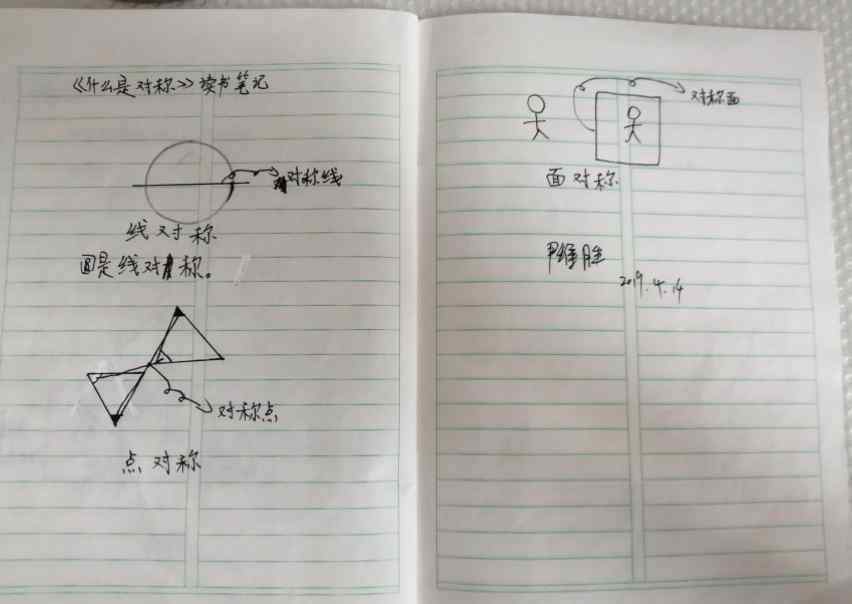 《什么是对称》读书笔记
对称线
线对称
圆是线对称。
对称点
点对称
对称面
面对称
2019.4.14